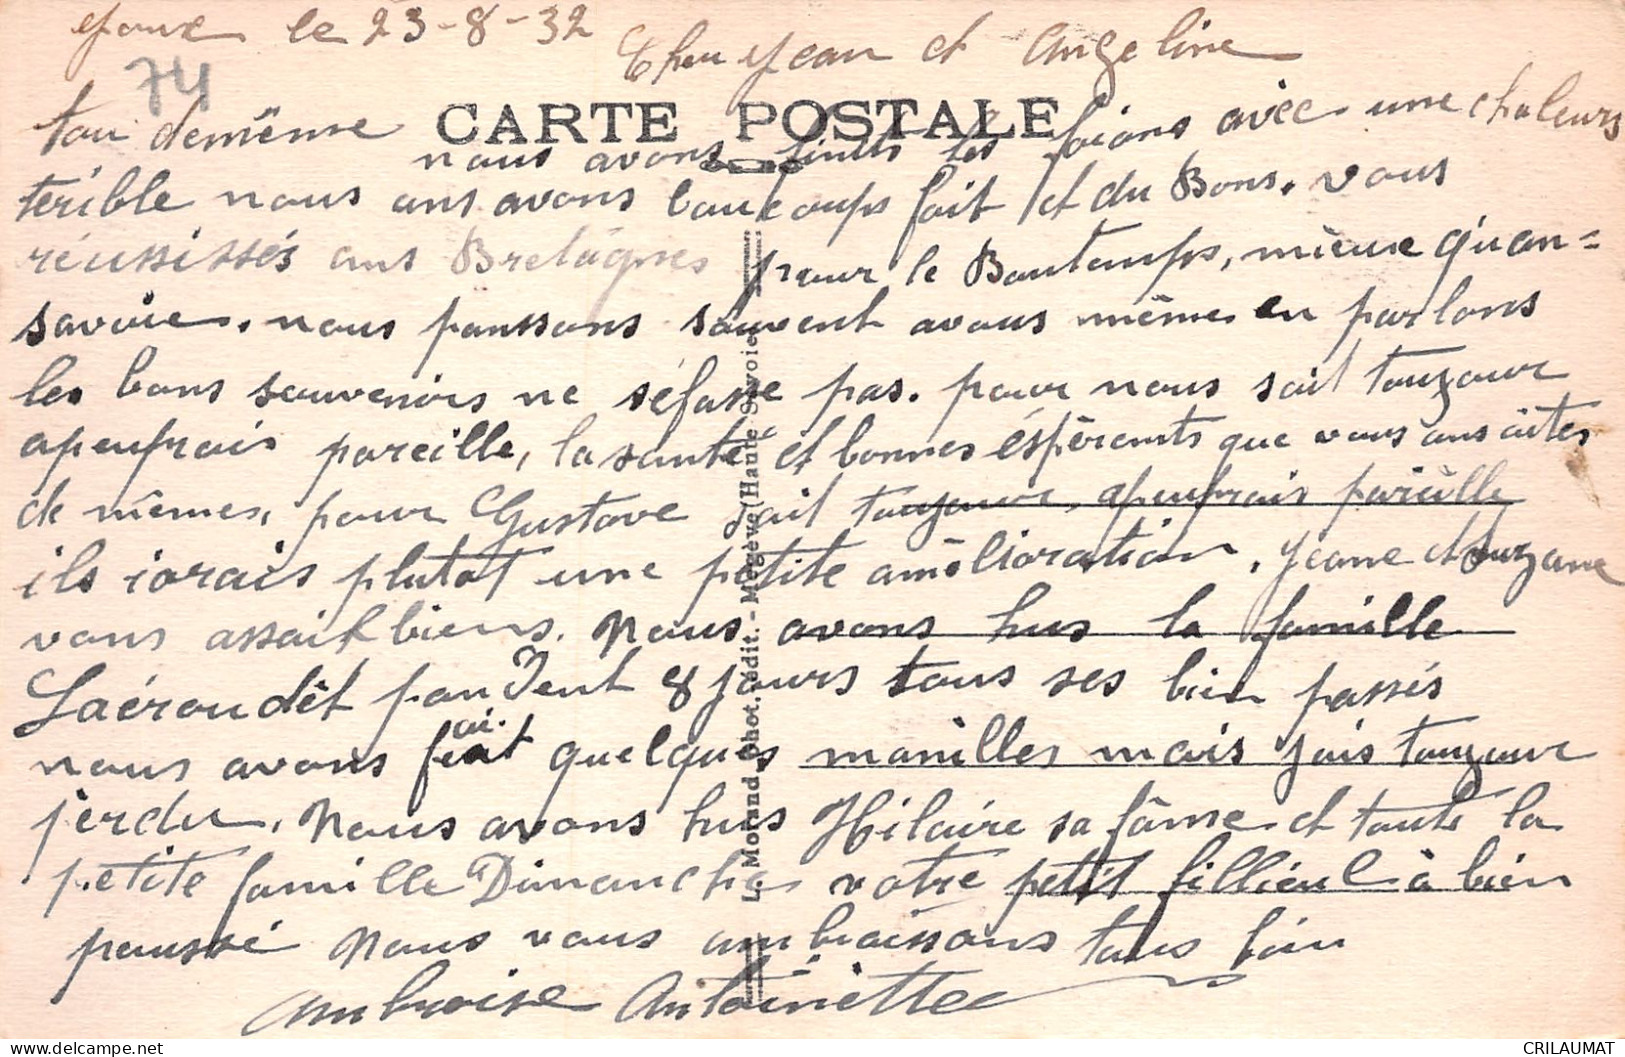 le 23-8-32
74
Cher Jean et Angeline
CARTE POSTALE
tou demême
nous avons finits les foions avec une chaleurs
terible nous ans avons boucoups fait et du Bons. vous
réussissés ans Bretâgnes pour le Bontemps, mieux qu'an=
savoie. nous panssons souvent avous même en parlons
les bons souvenirs ne séfasse pas. pour nous sait touzour
apeufrais pareille, la santé et bonnes éspèrents que vous ans aites
de mêmes, pour Gustave sait toujour, apeufrais parieille
ils iorais plutot une petite amélioration, Jeane et Suzane
vons assait biens. Nous avons hus la famille
Laéroudêt pandent 8 jours tous ses bien passés
nous avons fait quelques manilles mais jais touzour
perdu. Nous avons hus Hilaire sa fâme et toute la
petite famille Dimanche votre petit fillieul à bien
paussé Nous vous ambraissons tous bien
Ambroise Antoinette
L. Morand phot. édit. - Megève (Haute Savoie)
© delcampe.net
CRILAUMAT